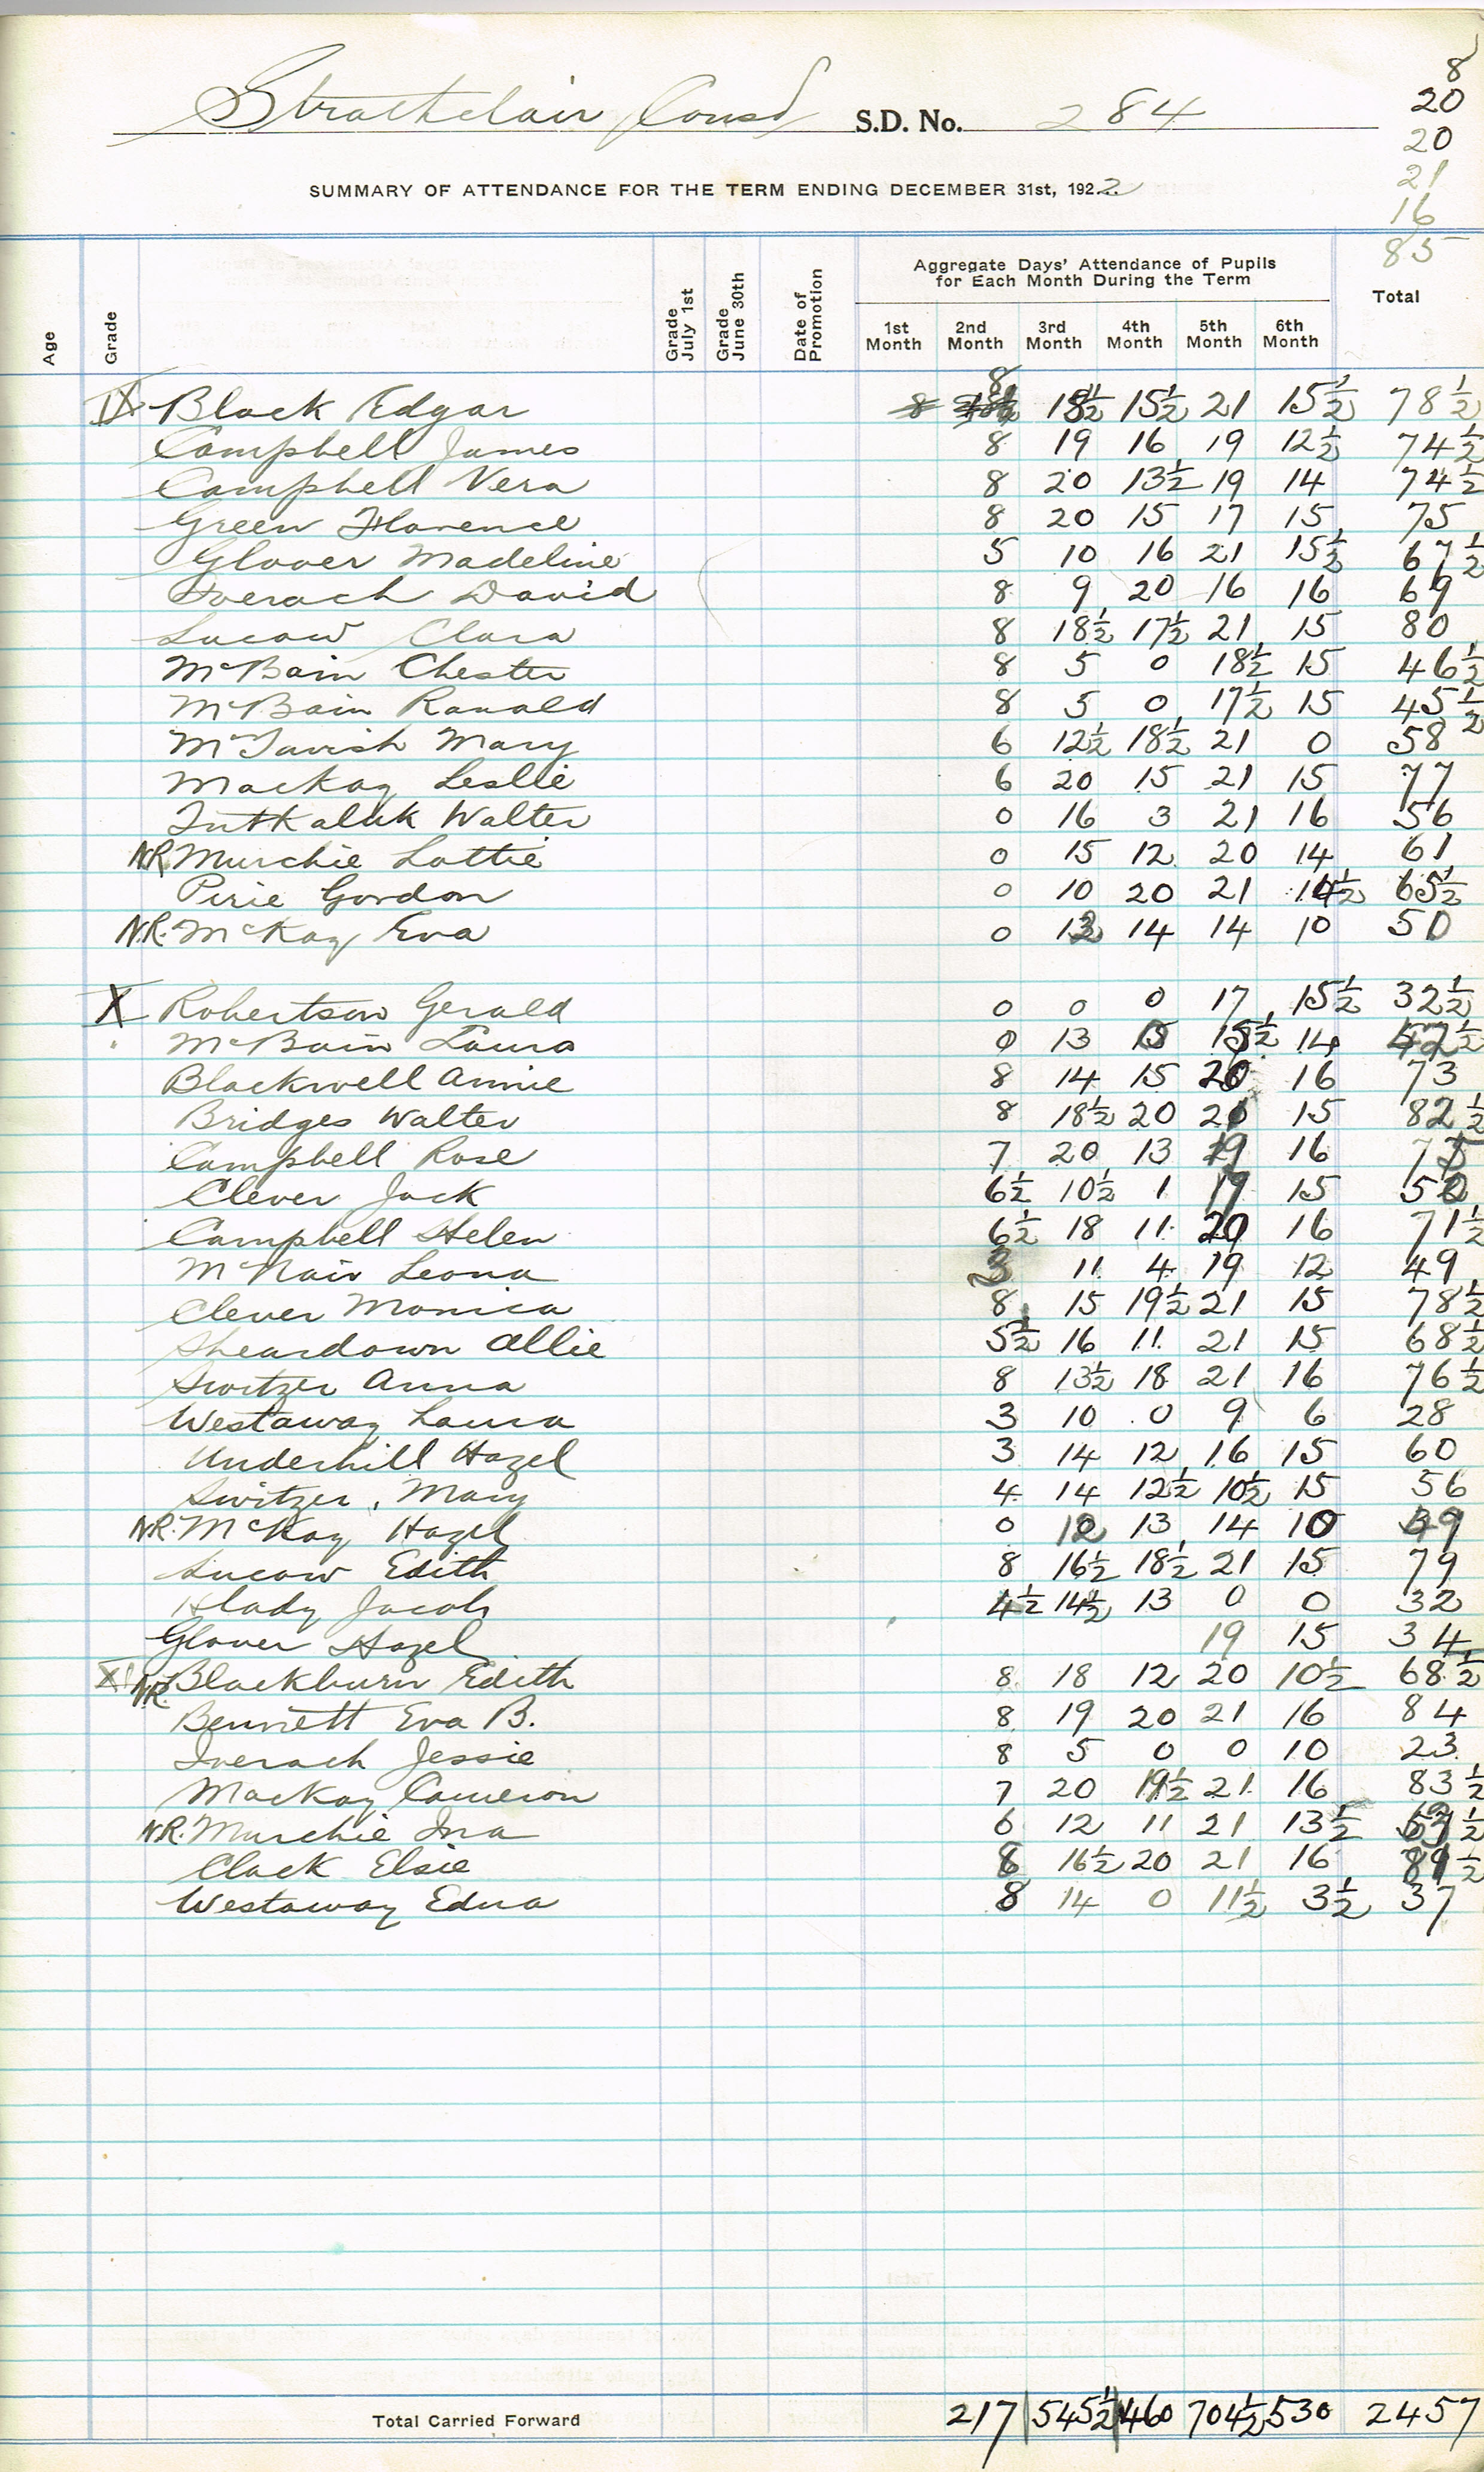 Strathclair Consd S.D. No. 284
8
20
20
21
16
85
SUMMARY OF ATTENDANCE FOR THE TERM ENDING DECEMBER 31st, 1922
Age Grade Grade July 1st Grade June 30th Date of Promotion Aggregate Days' Attendance of Pupils for Each Month During the Term Total
1st Month 2nd Month 3rd Month 4th Month 5th Month 6th Month
IX Black Edgar 8 8 18½ 15½ 21 15½ 78½
Campbell James 8 19 16 19 12½ 74½
Campbell Vera 8 20 13½ 19 14 74½
Green Florence 8 20 15 17 15 75
Glover Madeline 5 10 16 21 15½ 67½
Iverach David 8 9 20 16 16 69
Lucow Clara 8 18½ 17½ 21 15 80
McBain Chester 8 5 0 18½ 15 46½
McBain Ronald 8 5 0 17½ 15 45½
McTavish Mary 6 12½ 18½ 21 0 58
MacKay Leslie 6 20 15 21 15 77
Tuttkaluk Walter 0 16 3 21 16 56
NR Murchie Lottie 0 15 12 20 14 61
Pirie Gordon 0 10 20 21 14½ 65½
N.R. McKay Eva 0 12 14 14 10 50
X Robertson Gerald 0 0 0 17 15½ 32½
McBain Laura 0 13 0 15½ 14 42½
Blackwell Annie 8 14 15 20 16 73
Bridges Walter 8 18½ 20 21 15 82½
Campbell Rose 7 20 13 19 16 75
Clever Jack 6½ 10½ 1 17 15 50
Campbell Helen 6½ 18 11 20 16 71½
McNair Leona 3 11 4 19 12 49
Clever Monica 8 15 19½ 21 15 78½
Sheardown Allie 5½ 16 11 21 15 68½
Switzer Anna 8 13½ 18 21 16 76½
Westaway Laura 3 10 0 9 6 28
Underhill Hazel 3 14 12 16 15 60
Switzer, Mary 4 14 12½ 10½ 15 56
NR. McKay Hazel 0 12 13 14 10 49
Lucow Edith 8 16½ 18½ 21 15 79
Hlady Jacob 4½ 14½ 13 0 0 32
Glover Hazel 19 15 34
XI NR. Blackburn Edith 8 18 12 20 10½ 68½
Bennett Eva B. 8 19 20 21 16 84
Iverach Jessie 8 5 0 0 10 23
MacKay Cameron 7 20 19½ 21 16 83½
N.R. Murchie Ina 6 12 11 21 13½ 63½
Clack Elsie 8 16½ 20 21 16 81½
Westaway Edna 8 14 0 11½ 3½ 37
Total Carried Forward 217 545½ 460 704½ 530 2457